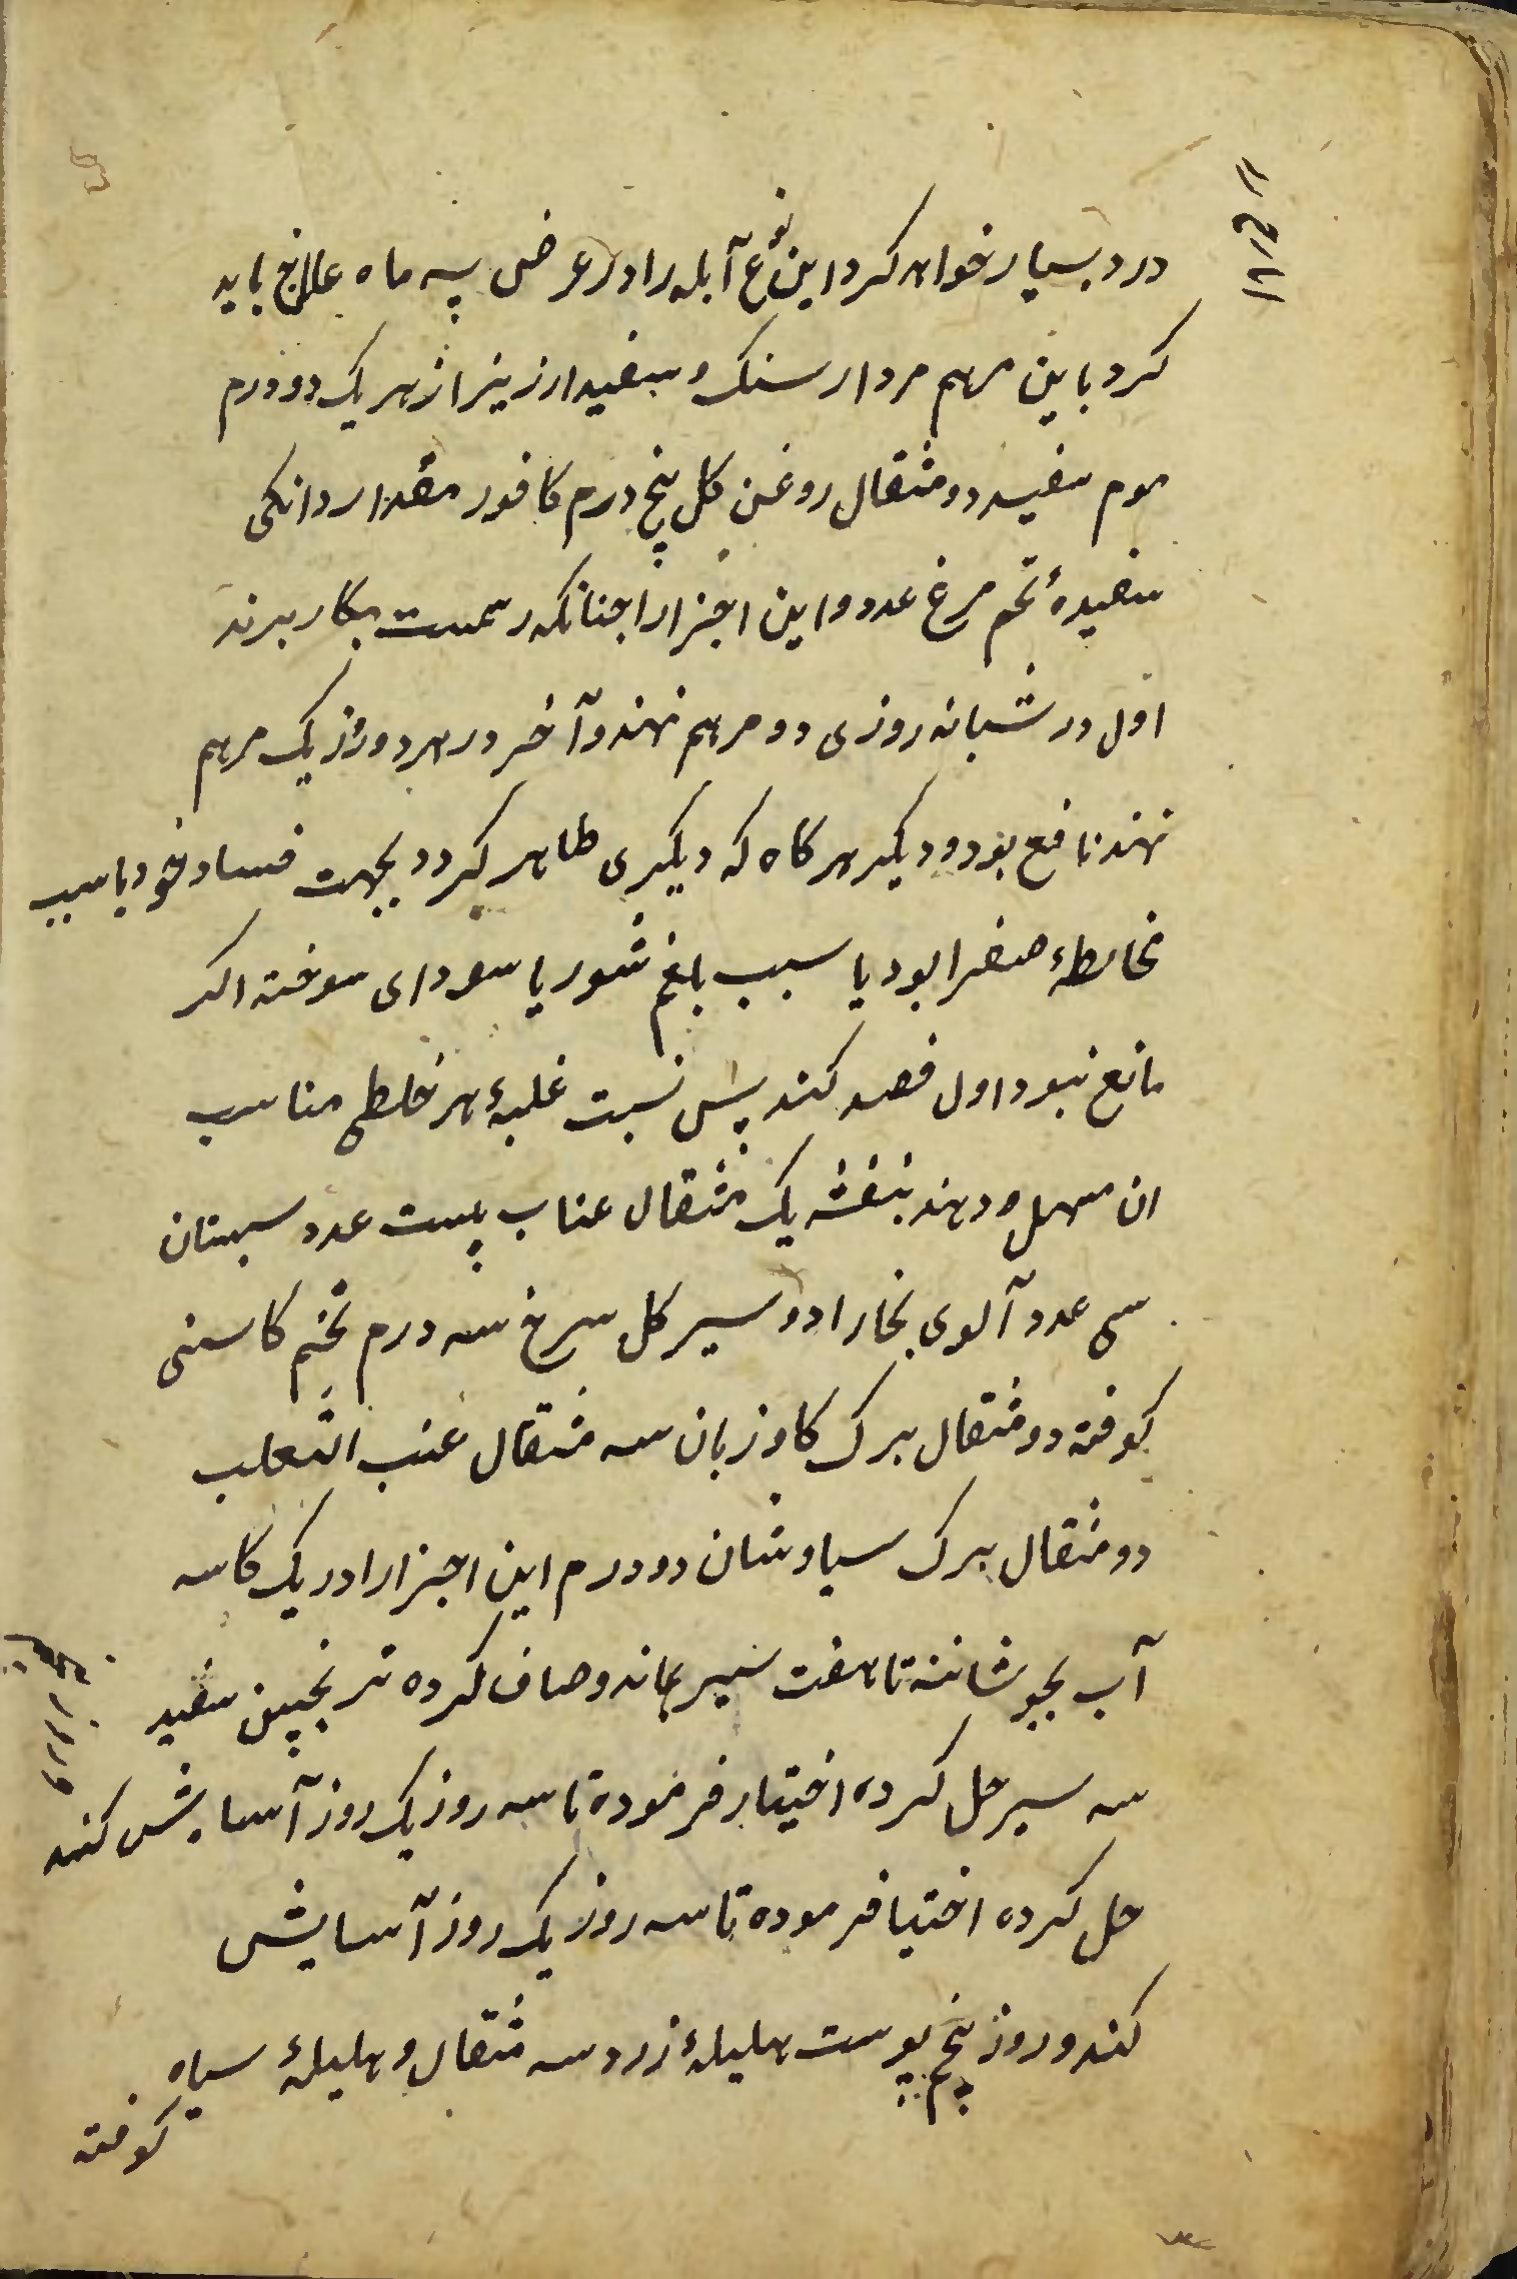 درد بسیار خواهد کرد این نوع آبله را در عرض سه ماه علاج باید
کرد باین مرهم مردار سنک و سفیدارزیز از هر یک دو درم
موم سفید دو مثقال روغن کل پنج درم کافور مقدار دانکی
سفیدهٔ تخم مرغ عدد و این اجزا را چنانکه رسمست بکار برند
اول در شبانه روزی دو مرهم نهند و آخر در هر دو روز یک مرهم
نهند نافع بود و دیکر هر کاه که دیکری ظاهر کردد بجهت فساد خود یا سبب
مخالطهٔ صفرا بود یا سبب بلغم شور یا سودای سوخته اکر
مانع نبود اول فصد کنند پس نسبت غلبهٔ هر خلطی مناسب
ان مسهل دهند بنفشه یک مثقال عناب بیست عدد سپستان
سی عدد آلوی بخارا دو سیر کل سرخ سه درم تخم کاسنی
کوفته دو مثقال برک کاوزبان سه مثقال عنب الثعلب
دو مثقال برک سیاوشان دو درم این اجزا را در یک کاسه
آب بجوشانند تا هفت سیر بماند و صاف کرده ترنجبین سفید
سه سیر حل کرده اختیار فرموده تا سه روز یک روز آسایش کنند
حل کرده اختیا فرموده تا سه روز یک روز آسایش
کند و روز پنجم پوست هلیلهٔ زرد سه مثقال و هلیلهٔ سیاه
کوفته